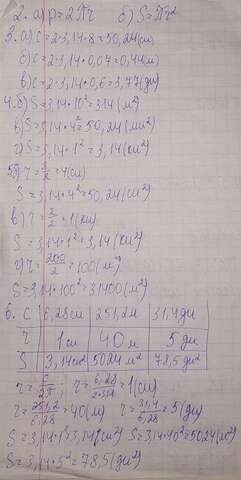 2. а) P=2πr б) S=πr²
3. а) C=2·3,14·8=50,24(см)
б) C=2·3,14·0,07=0,44(м)
в) C=2·3,14·0,6=3,77(дм)
4. б) S=3,14·10²=314(м²)
в) S=3,14·4²=50,24(мм²)
г) S=3,14·1²=3,14(км²)
r=8/2=4(см)
S=3,14·4²=50,24(см²)
в) r=2/2=1(км)
S=3,14·1²=3,14(км²)
г) r=200/2=100(м)
S=3,14·100²=31400(м²)
6. C 6,28см 251,2м 31,4дм
r 1см 40м 5дм
S 3,14см² 5024м² 78,5дм²
r=C/2π; r=6,28/2·3,14=1(см)
r=251,2/6,28=40(м) r=31,4/6,28=5(дм)
S=3,14·1²=3,14(см²) S=3,14·40²=5024(м²)
S=3,14·5²=78,5(дм²)